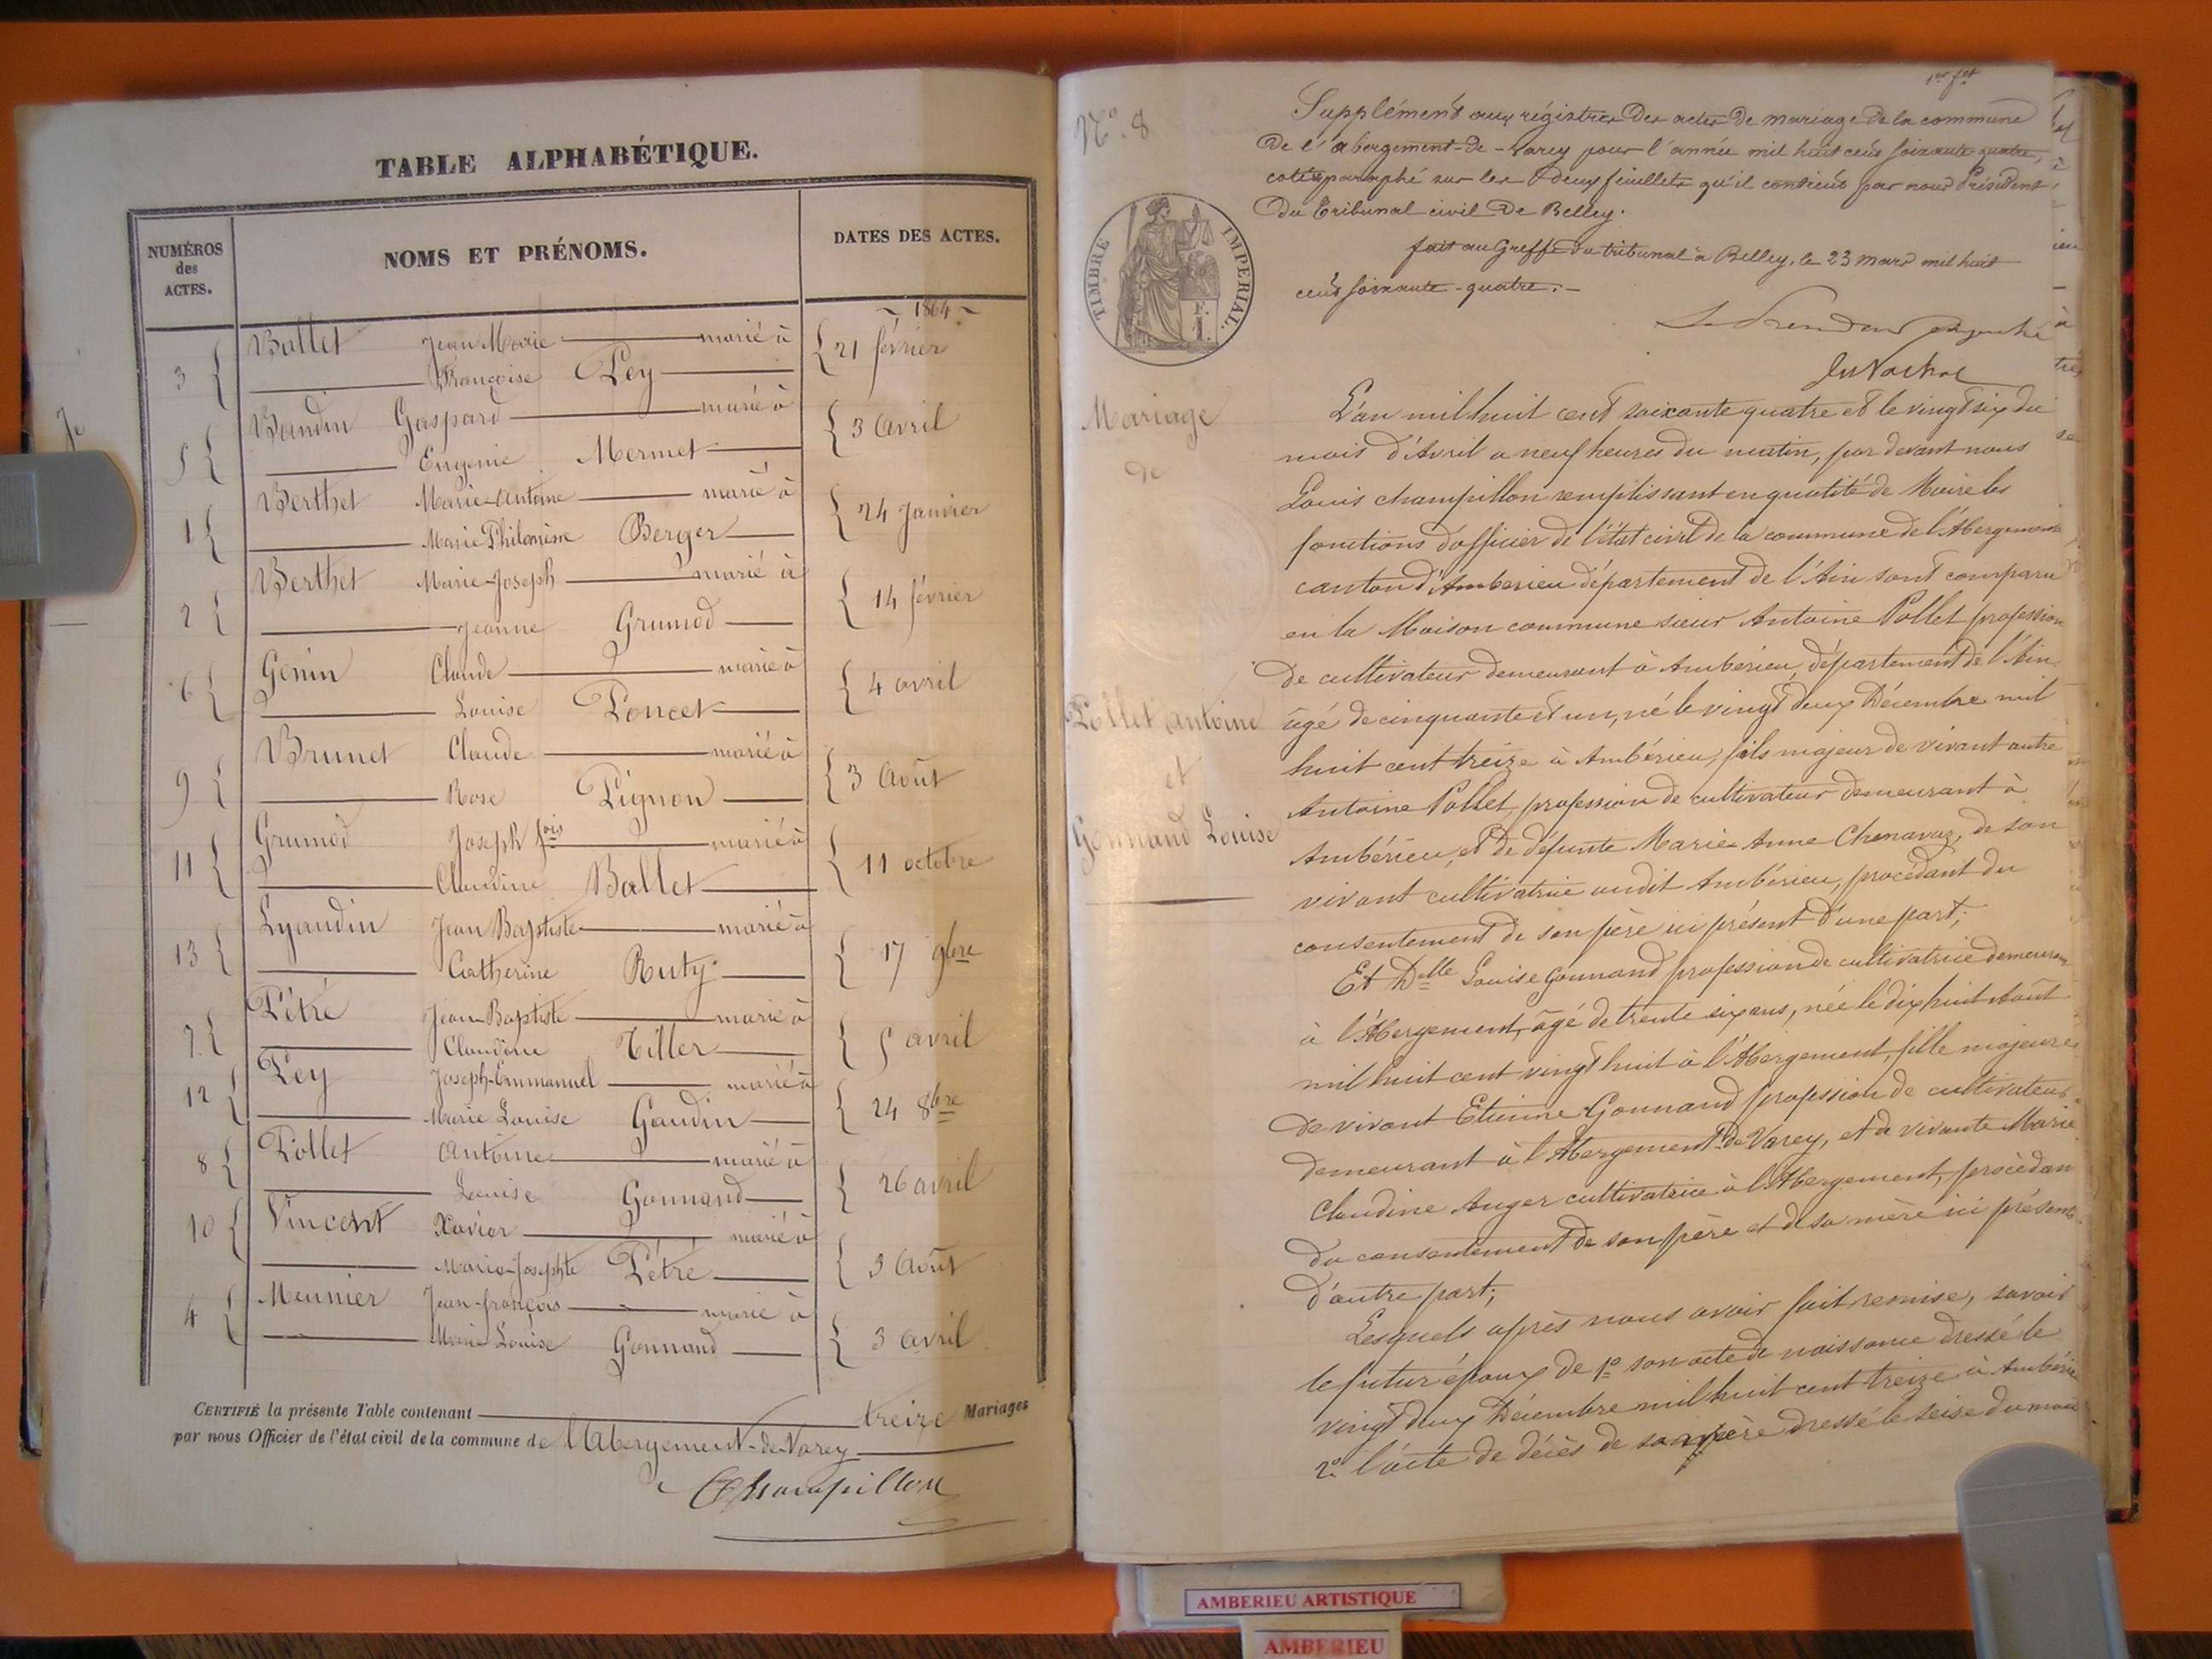 TABLE ALPHABÉTIQUE.
NUMÉROS des ACTES.
NOMS ET PRÉNOMS.
DATES DES ACTES.
1864
3 Ballet Jean Marie marié à
Françoise Pey
21 février
5 Baudin Gaspard marié à
Eugénie Mermet
3 Avril
1 Berthet Marie-Antoine marié à
Marie Philomène Berger
24 Janvier
2 Berthet Marie-Joseph marié à
Jeanne Grumod
14 février
6 Genin Claude marié à
Louise Poncet
4 avril
9 Brunet Claude marié à
Rose Pignon
3 Août
11 Grumod Joseph fois marié à
Claudine Ballet
11 octobre
13 Lyaudin Jean Baptiste marié à
Catherine Ruty
17 9bre
7 Pétré Jean-Baptiste marié à
Claudine Tiller
5 avril
12 Pey Joseph-Emmanuel marié à
Marie Louise Gaudin
24 8bre
8 Pollet Antoine marié à
Louise Gonnand
26 avril
10 Vincent Xavier marié à
Marie-Josephte Pétré
3 Août
4 Meunier Jean-françois marié à
Marie Louise Gonnand
3 avril
CERTIFIÉ la présente Table contenant treize Mariages
par nous Officier de l'état civil de la commune de l'Abergement-de-Varey
Champillon
1er ft
No. 8
Supplément aux régistres des actes de mariage de la commune
de l'abergement-de-Varey pour l'année mil huit cent soixante quatre,
coté & paraphé sur les deux feuillets qu'il contient par nous Président
du Tribunal civil de Belley.
fait au Greffe du tribunal à Belley, le 23 mars mil huit
cent soixante-quatre.
TIMBRE IMPERIAL.
F. 1.
Mariage
de
Pollet Antoine
et
Gonnand Louise
L'an mil huit cent soixante quatre et le vingt six du
mois d'Avril a neuf heures du matin, par devant nous
Louis champillon remplissant en qualité de Maire les
fonctions d'officier de l'état civil de la commune de l'Abergement
canton d'Amberieu département de l'Ain sont comparu
en la Maison commune sieur Antoine Pollet profession
de cultivateur demeurant à Ambérieu, département de l'Ain
âgé de cinquante et un, né le vingt deux Décembre mil
huit cent treize à Ambérieu, fils majeur de vivant autre
Antoine Pollet profession de cultivateur demeurant à
Ambérieu, et de défunte Marie Anne Chenavaz, de son
vivant cultivatrice audit Ambérieu, procédant du
consentement de son père ici présent d'une part;
Et Delle Louise Gonnand profession de cultivatrice demeurant
à l'Abergement, âgé de trente six ans, née le dix huit Août
mil huit cent vingt huit à l'Abergement, fille majeure
de vivant Etienne Gonnand profession de cultivateur
demeurant à l'Abergement de Varey, et de vivante Marie
Claudine Auger cultivatrice à l'Abergement, procédan
du consentement de son père et de sa mère ici présents
d'autre part;
Lesquels après nous avoir fait remise, savoir
le futur époux de 1o son acte de naissance dressé le
vingt deux Décembre mil huit cent treize à Ambérieu
2o l'acte de décès de sa mère dressé le seise du mois
AMBERIEU ARTISTIQUE
AMBERIEU